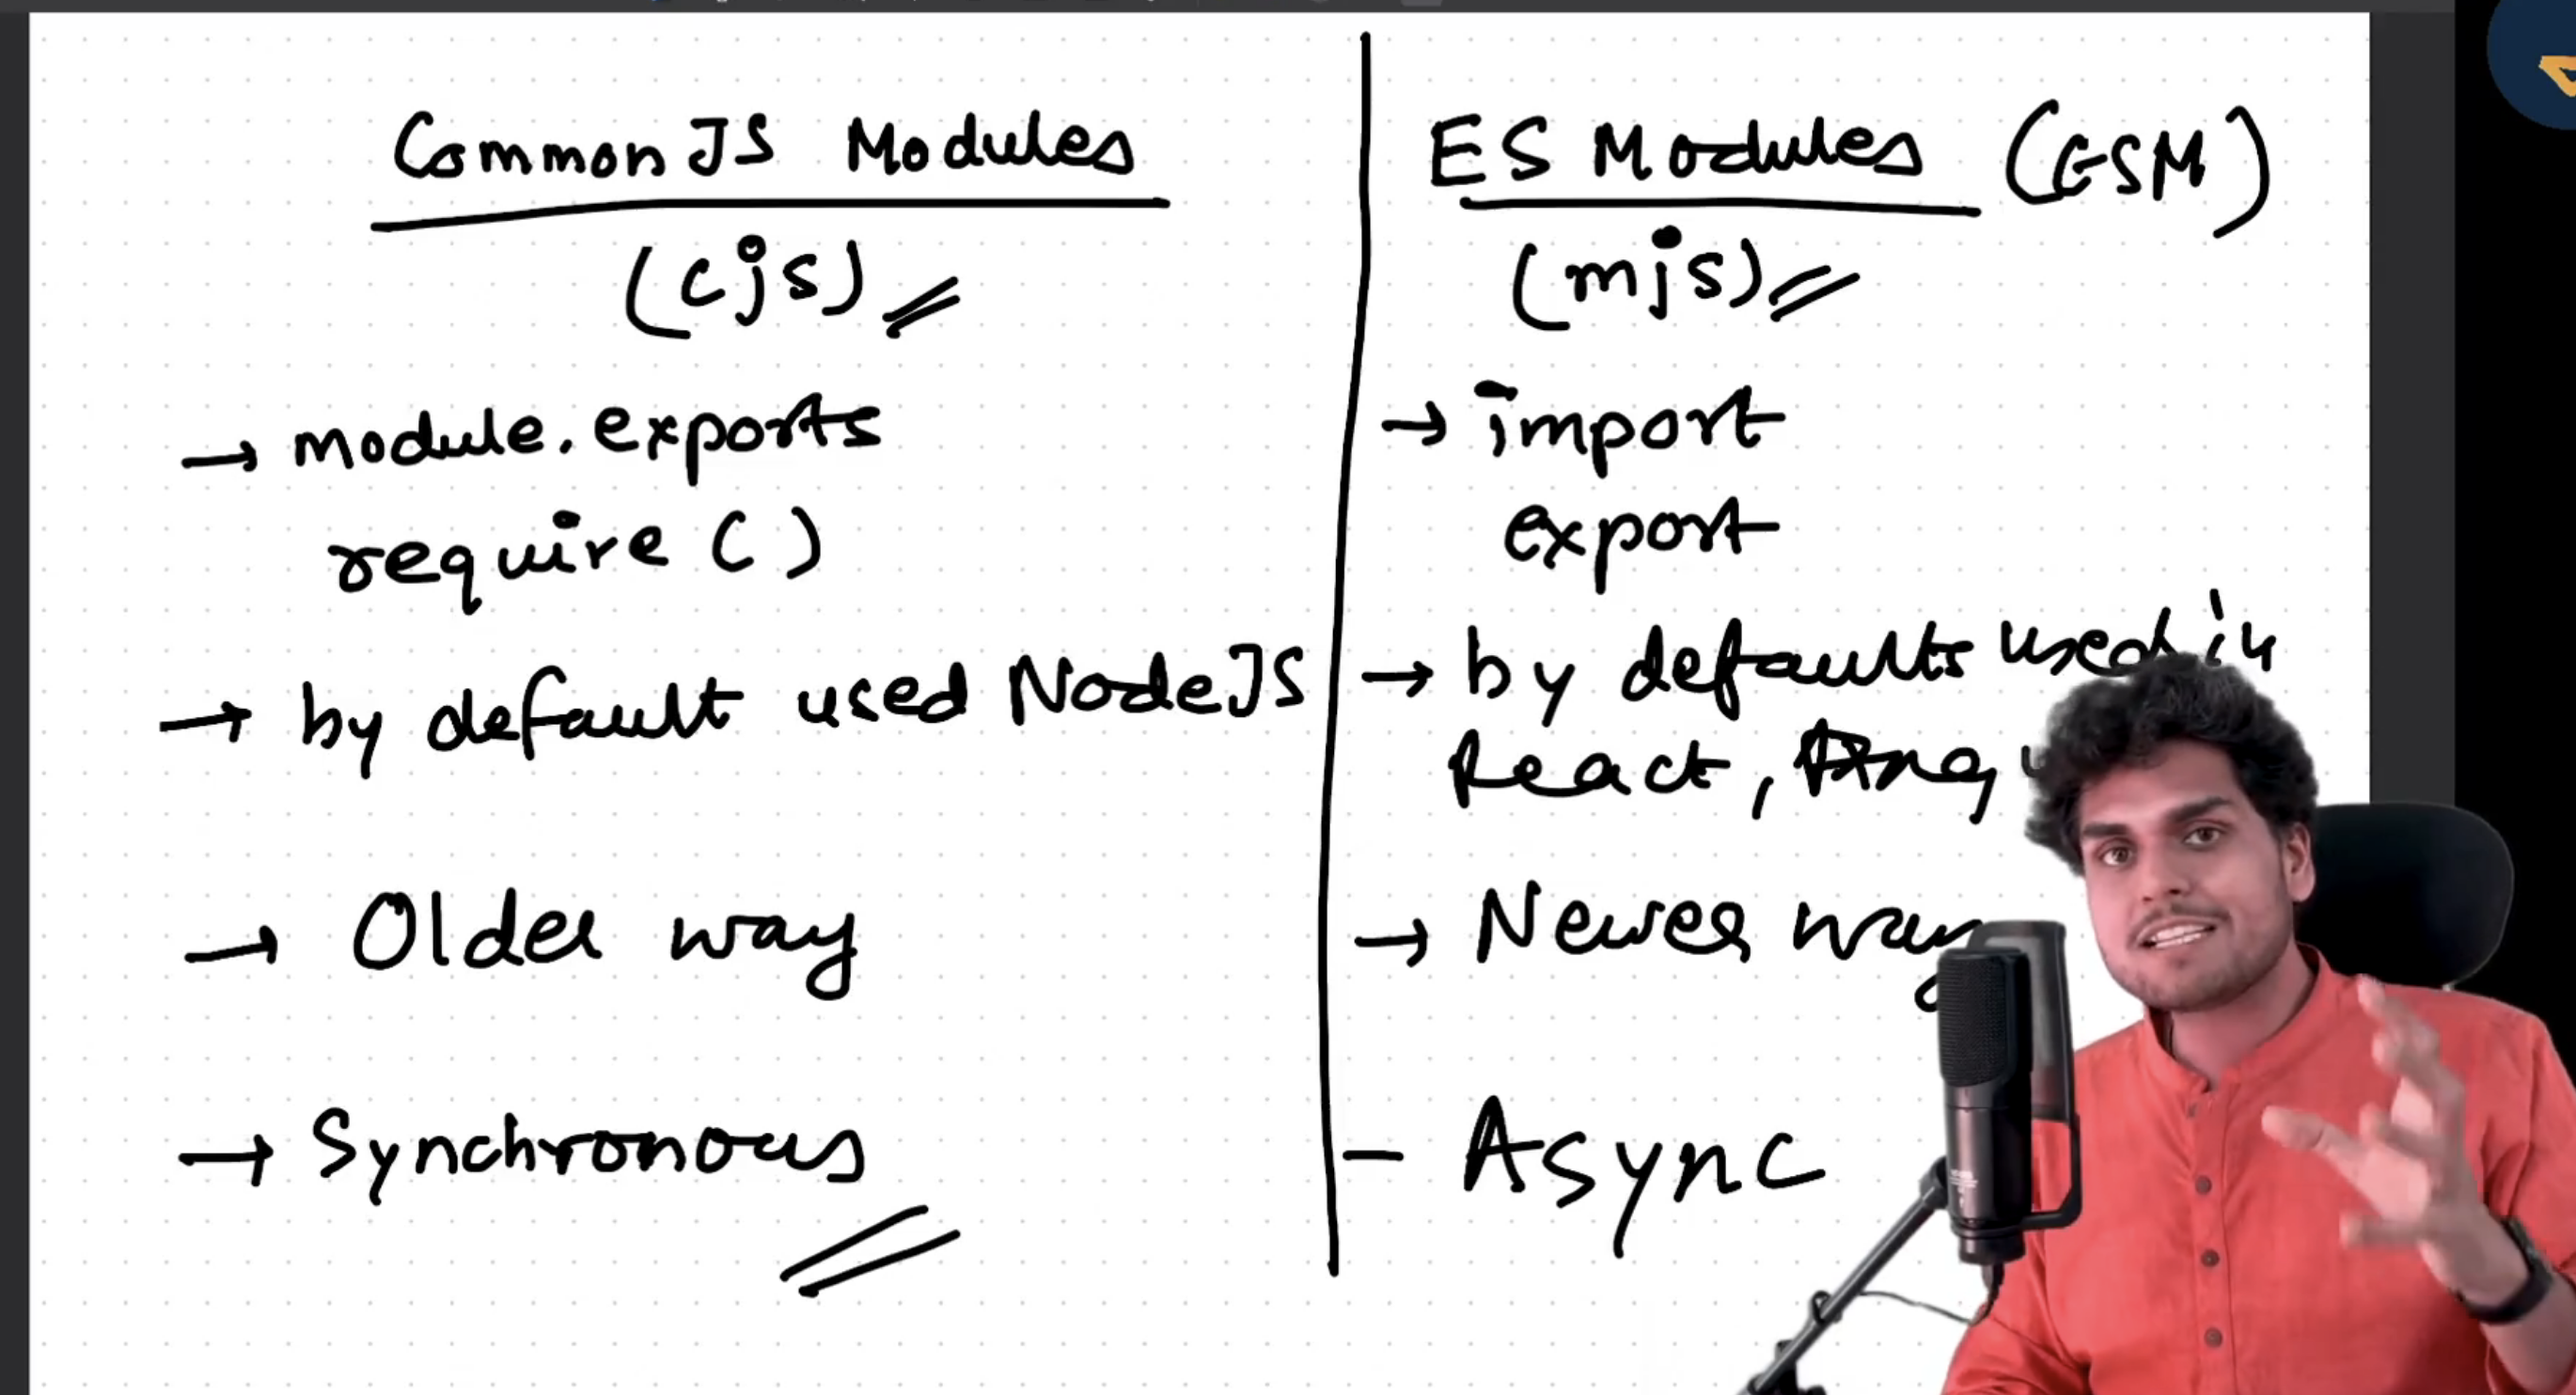 CommonJS Modules
(cjs)
→ module.exports
require ( )
→ by default used NodeJS
→ Older way
→ Synchronous
ES Modules (ESM)
(mjs)
→ import
export
→ by defaults used in
React,
→ Newer way
- Async